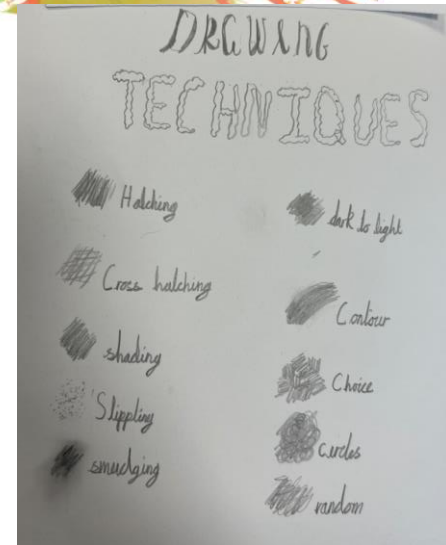 DRAWING
TECHNIQUES
Hatching
Cross hatching
shading
Stippling
smudging
dark to light
Contour
Choice
circles
random